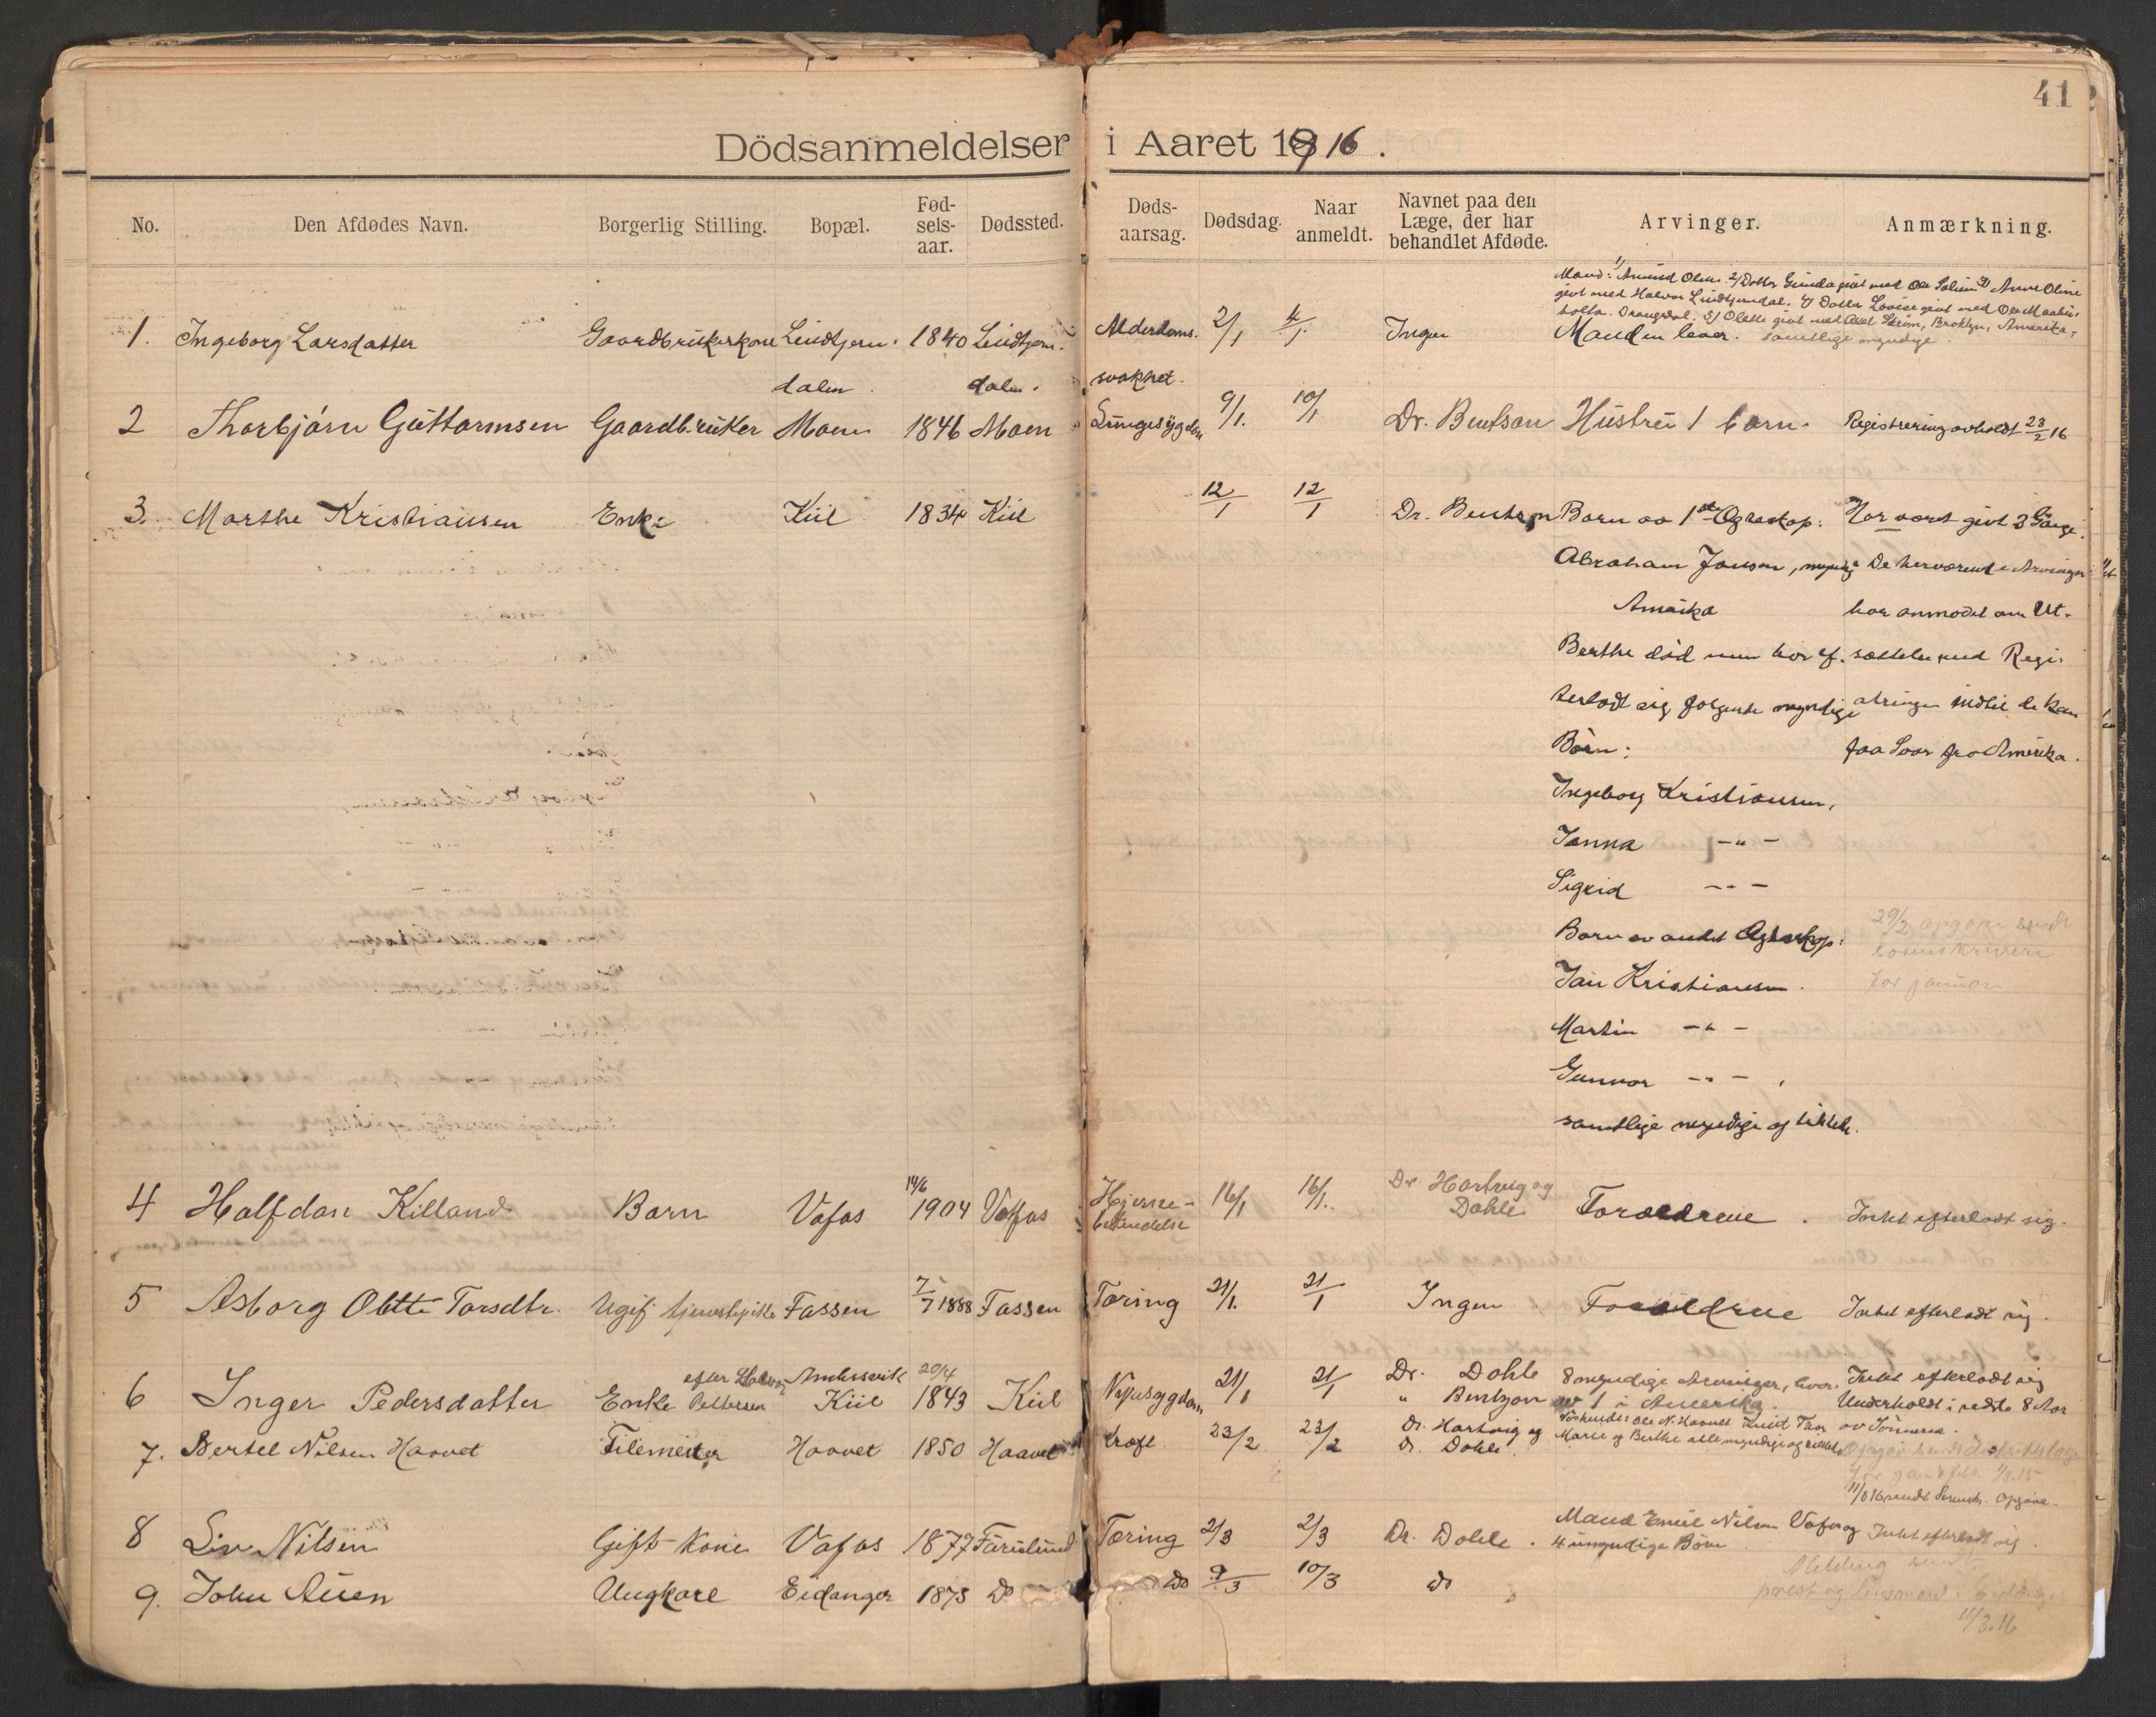 41
Dödsanmeldelser i Aaret 1916.
No. Den Afdødes Navn. Borgerlig Stilling. Bopæl. Fød-sels-aar. Dødssted. Døds-aarsag. Dødsdag. Naar anmeldt. Navnet paa den Læge, der har behandlet Afdøde. Arvinger. Anmærkning.
Mand: 1) Amund Olsen. 2) Datter Gunda givt med Ole 3) Anne Oline
givt med Halvor Lindtjerndal. 4) Datter Lovise givt med Ole
Drangedal. 5) Olette givt med Axel Strøm, Broklyn, Amerika,
1. Ingeborg Larsdatter Gaardbrukerkone Lindtjern- 1840 Lindtjern- Alderdoms- 2/1 4/1 Ingen Manden lever. samtlige myndige.
dalen dalen. svakhet.
2 Thorbjørn Guttormsen Gaardbruker Moen 1846 Moen Lungesygdom 9/1. 10/1 Dr. Bentsen Hustru 1 barn. Registrering avholdt 23/2 16
3. Marthe Kristiansen Enke Kiil 1834 Kiil 12/1 12/1 Dr. Bentsen Barn av 1ste Egteskap: Har været givt 3 Gange.
Abraham Jansen, myndig De herværende Arvinger
Amerika har anmodet om Ut-
Berthe død men har ef- sættelse med Regi-
terladt sig følgende myndige stringen indtil de kan
Børn: faa Svar fra Amerika.
Ingeborg Kristiansen,
Janna -"-
Sigrid -"-
Barn av andet Egteskap: 29/2 opgave sendt
Jan Kristiansen. sorenskriveren
for januar
Martin -"-
Gunvor -"-,
samtlige myndige og tilstede.
4 Halfdan Killand Barn Vafos 14/6 1904 Vafos Hjerne-betændelse 16/1 16/1. Dr. Hartvig og Dahle Forældrene. Intet efterladt sig.
5 Asborg Olette Torsdtr. Ugif. tjenestepike Fassen 7/7 1888 Fassen Tæring 21/1. 21/1 Ingen Forældrene Intet efterladt sig.
6 Inger Pedersdatter Enke efter Halvor Pettersen Kiil 20/4 1843 Kiil Nyresygdom 21/1 21/1 Dr. Dahle 8 myndige Arvinger, hvor- Intet efterladt sig
" Bentzon av 1 i Amerika. Underholdt i sidste 8 Aar
av Sønnerne.
7. Bertel Nilsen Haavet Filemester Haavet 1850 Haavet Kræft 23/2 23/2 Dr. Hartvig og Søskende: Ole N. Haavet Knut Tor
Dr. Dahle. Marie og Berthe alle myndige og tilstede
11/3 16 sendt Sorensk. Opgave.
8 Liv Nilsen Gift-Kone Vafos 1877 Farislund Tæring 2/3 2/3 Dr. Dahle. Mand Emil Nilsen Vafos og Intet efterladt sig.
4 umyndige Børn
9. John Auen Ungkare Eidanger 1875 Do Do 9/3 10/3 do Melding sendt
prest og lensmand i Eidanger
11/3.16